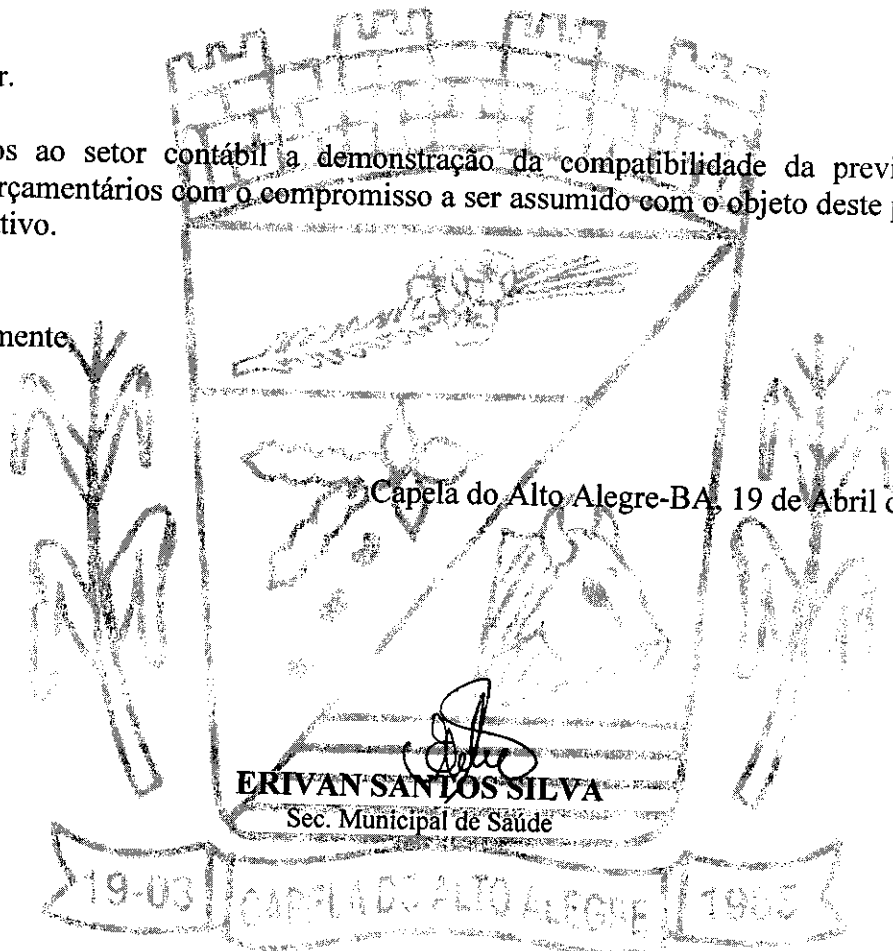 r.
os ao setor contábil a demonstração da compatibilidade da previ
rçamentários com o compromisso a ser assumido com o objeto deste p
tivo.
mente,
Capela do Alto Alegre-BA, 19 de Abril d
ERIVAN SANTOS SILVA
Sec. Municipal de Saúde
19-03 CAPELA DO ALTO ALEGRE 1985